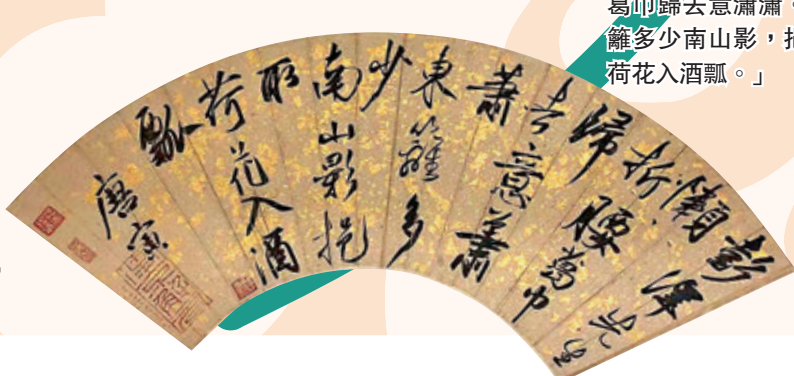 葛巾歸去意瀟瀟
籬多少南山影，挹
荷花入酒瓢。」
彭澤先生
懶
折腰葛巾
歸
去意蕭
蕭
東籬多
少
南山影挹
取
荷花入酒
瓢
唐寅